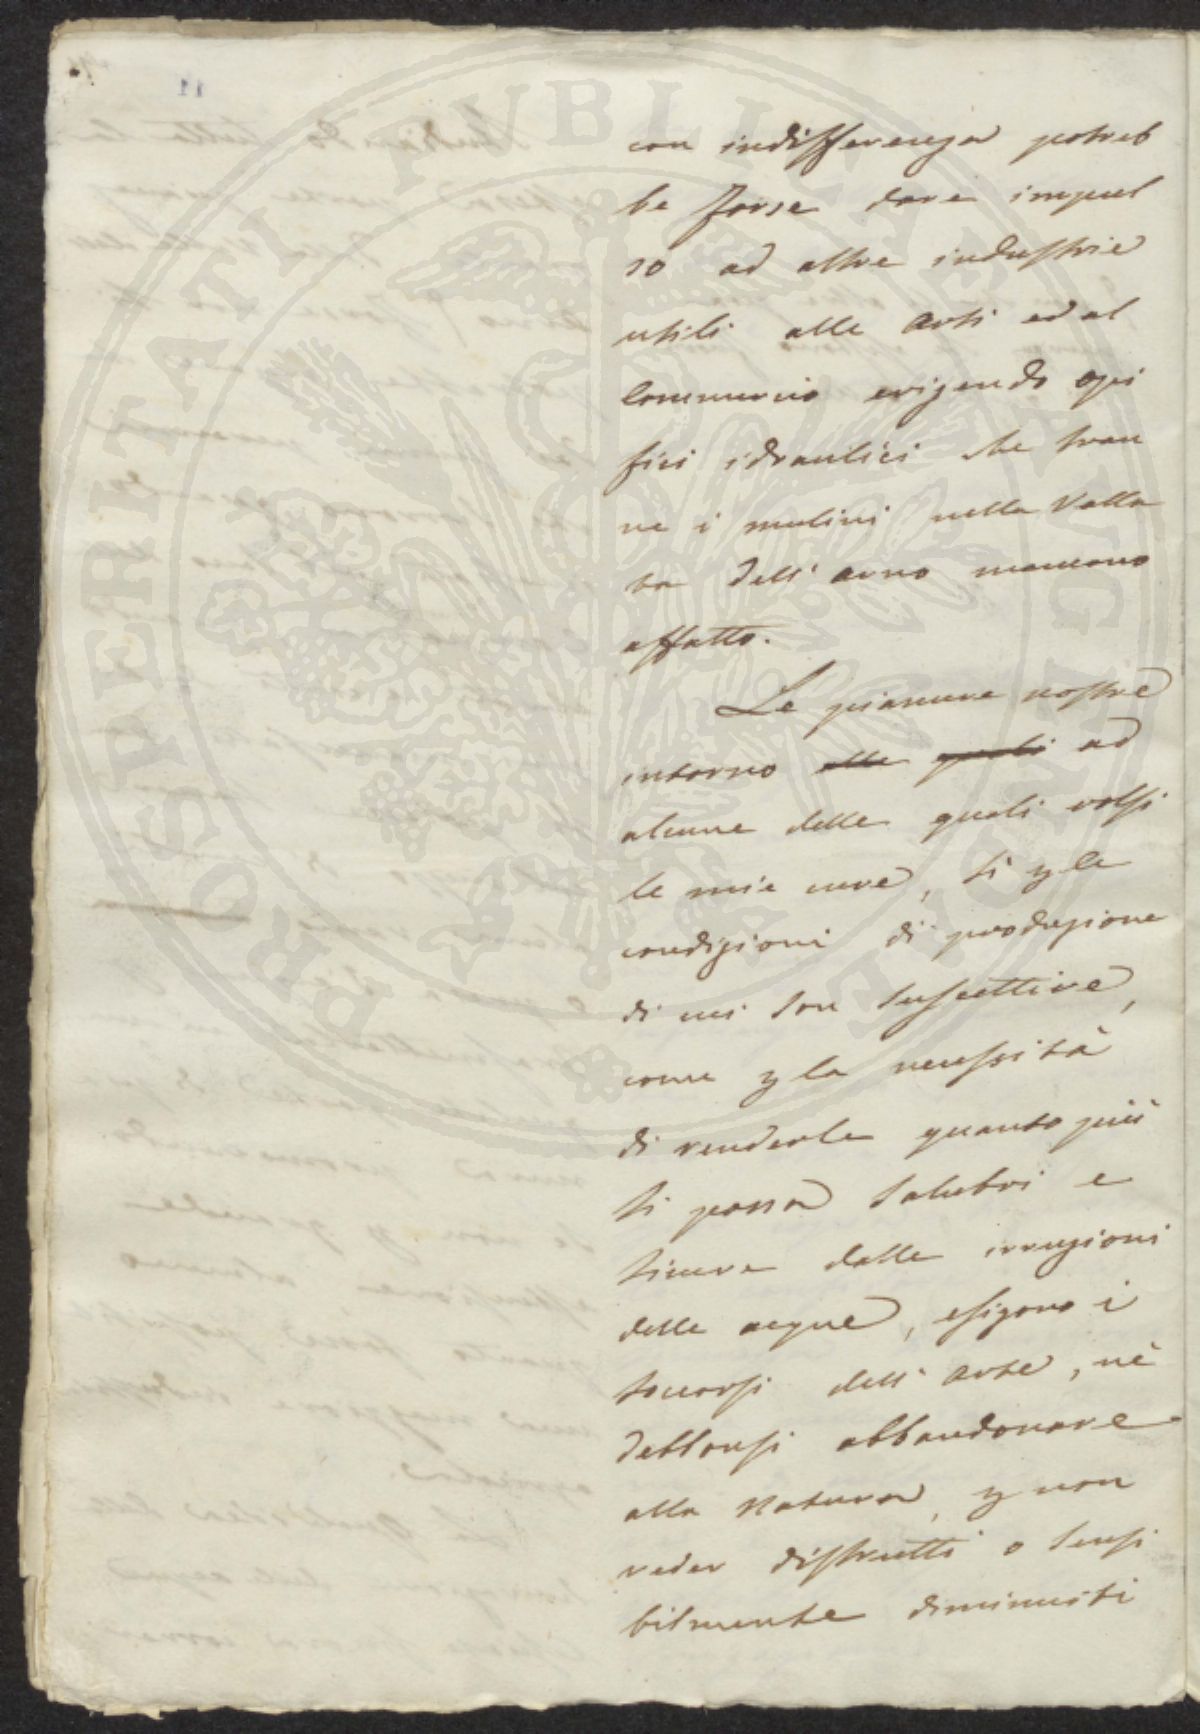 con indifferenza potreb
be forse dare impul
so ad altre industrie
utili alle Arti ed al
Commercio erigendo opi
fici idraulici che tran
ne i mulini nella Valla
ta dell' Arno mancano
affatto.
Le pianure nostre
intorno alle quali ad
alcune delle quali volsi
le mie cure, si p le
condizioni di produzione
di cui son suscettive,
come p la necessità
di renderle quanto più
si possa salubri e
sicure dalle irruzioni
delle acque, esigono i
soccorsi dell' Arte, nè
debbonsi abbandonare
alla Natura, p non
veder distrutti o sensi
bilmente diminuiti
PROSPERITATI PUBLICAE AUGENDAE
11